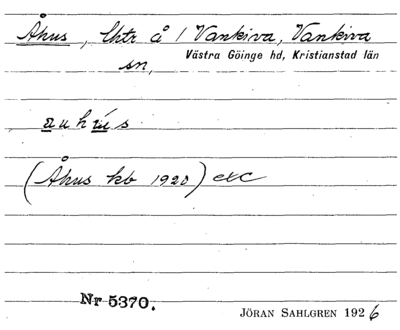 Åhus, lhtr å / Vankiva, Vankiva
Västra Göinge hd, Kristianstad län
sn,
a u h ú s
(Åhus kb 1920) etc
Nr 5370.
JÖRAN SAHLGREN 1926